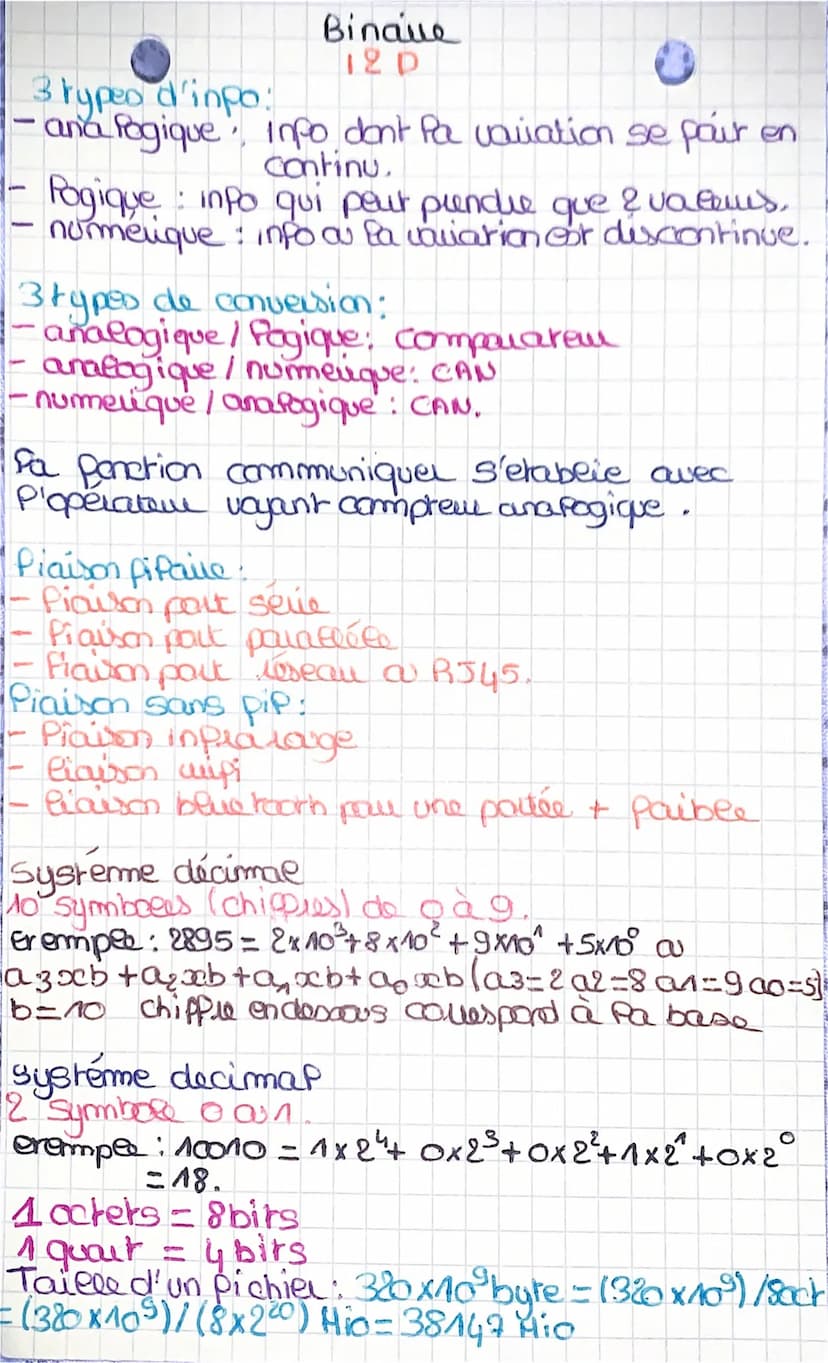 Binaire
I2D
3 types d'info:
- analogique : info dont la variation se fait en
continu.
- logique : info qui peut prendre que 2 valeurs.
- numérique : info où la variation est discontinue.
3 types de conversion:
- analogique / logique: comparateur
- analogique / numérique: CAN
- numerique / analogique : CAN.
la fonction communiquer s'etablie avec
l'opérateur voyant compteur analogique.
liaison filaire:
- liaison port série
- liaison port parallèle
- liaison port réseau ou RJ45.
liaison sans fil:
- liaison infrarouge
- liaison wifi
- liaison bluetooth pour une portée + faible
Systéme décimal
10 symboles (chiffres) de 0 à 9.
Exemple : 2895 = 2x10³+8x10² +9x10¹ +5x10⁰ ou
a3xb +a2xb+a1xb+a0xb (a3=2 a2=8 a1=9 a0=5)
b=10 chiffre endessous correspond à la base
Systéme decimal
2 symbole 0 ou 1.
exemple : 10010 = 1x2⁴+ 0x2³+0x2²+1x2¹+0x2⁰
=18.
1 octets = 8bits
1 quart = 4bits
Taille d'un fichier: 320x10⁹byte = (320x10⁹)/8oct
=(320x10⁹)/(8x2²⁰) Mio=38147 Mio